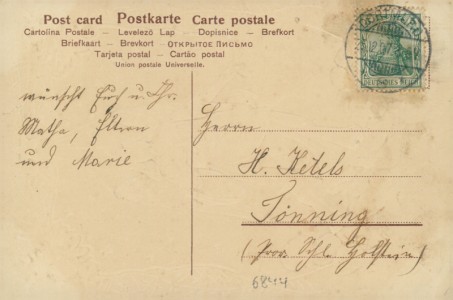 Post card Postkarte Carte postale
Cartolina Postale – Levelező Lap – Dopisnice – Brefkort
Briefkaart – Brevkort – ОТКРЫТОЕ ПИСЬМО
Tarjeta postal – Cartão postal
Union postale Universelle.
DEUTSCHES REICH
wünscht Euch u.
Martha, Eltern
und Marie
Herrn
H. Ketels
Tönning
(Prov. Schl. Holstein)
6844